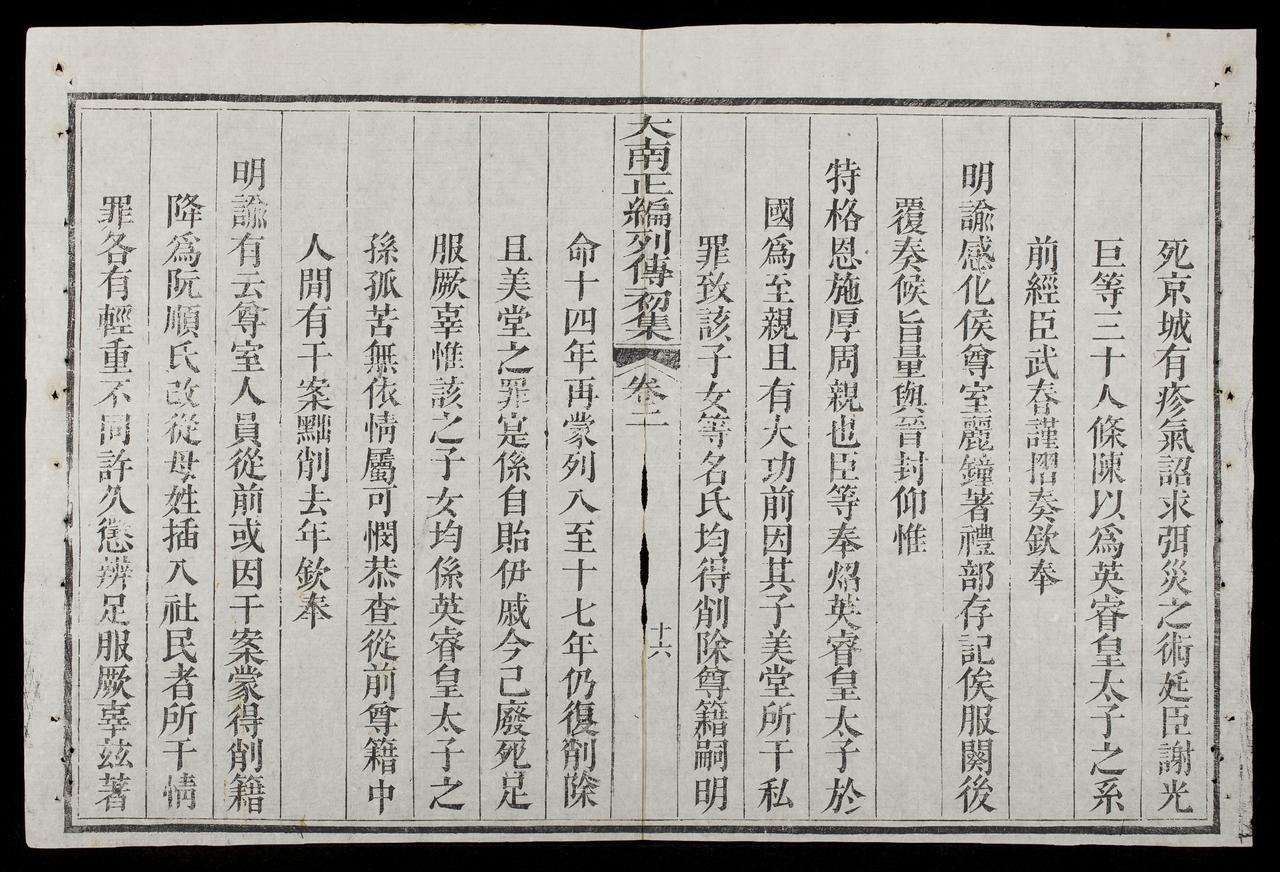 死京城有疹氣詔求弭災之術廷臣謝光
巨等三十人條陳以爲英睿皇太子之系
前經臣武春謹摺奏欽奉
明諭感化侯尊室麗鐘著禮部存記俟服闋後
覆奏候旨量與晉封仰惟
特格恩施厚周親也臣等奉炤英睿皇太子於
國爲至親且有大功前因其子美堂所干私
罪致該子女等名氏均得削除尊籍嗣明
大南正編列傳初集
卷二
十六
命十四年再蒙列入至十七年仍復削除
且美堂之罪寔係自貽伊戚今已廢死足
服厥辜惟該之子女均係英睿皇太子之
孫孤苦無依情屬可憫恭查從前尊籍中
人間有干案黜削去年欽奉
明諭有云尊室人員從前或因干案蒙得削籍
降爲阮順氏改從母姓插入社民者所干情
罪各有輕重不同許久懲辨足服厥辜茲著